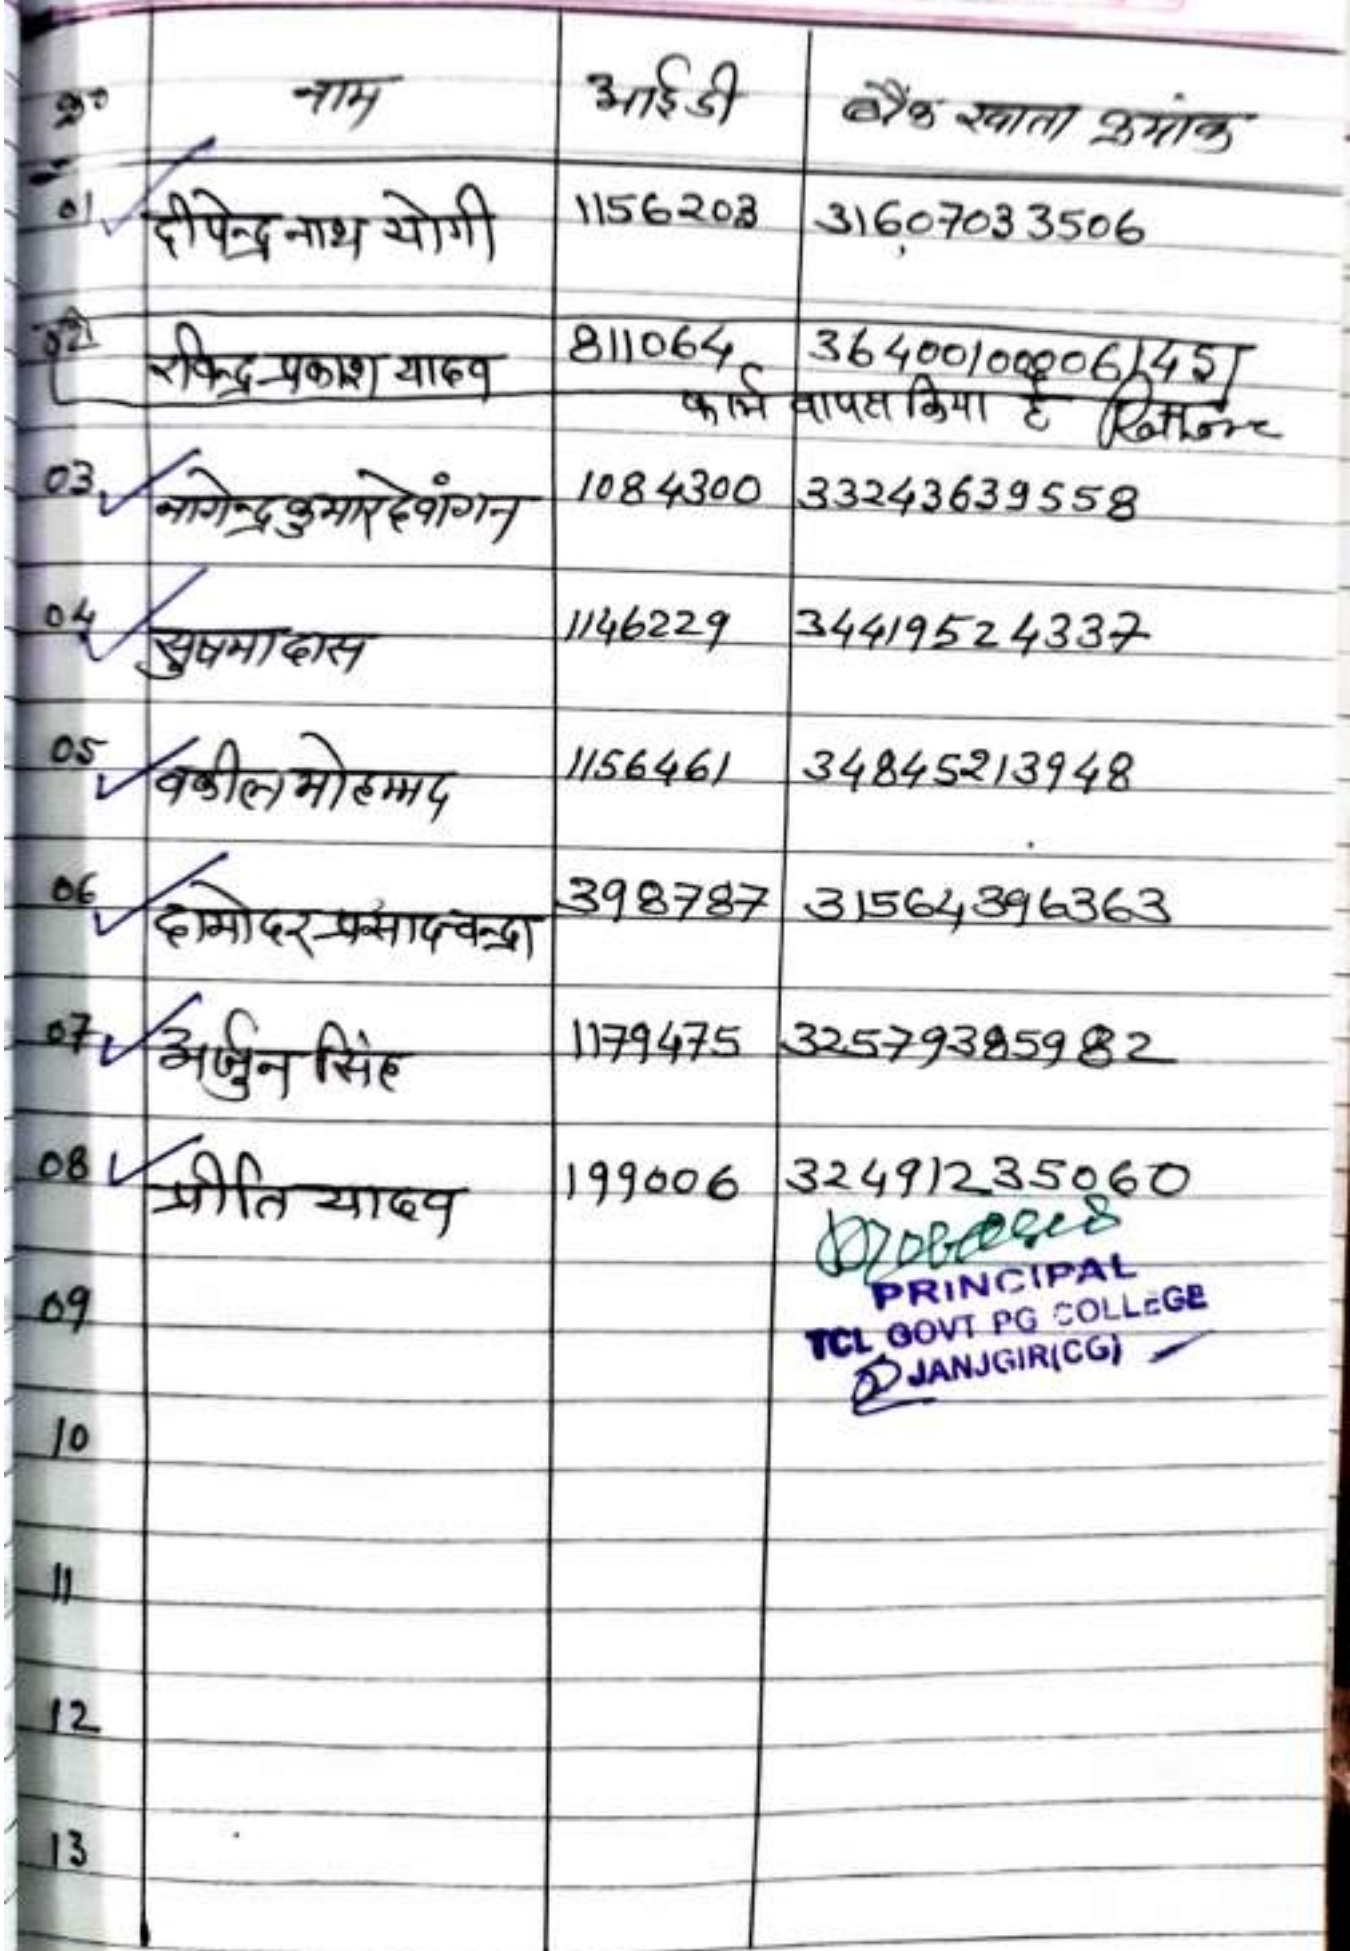 क्र० नाम आईडी बैंक खाता क्रमांक
01 दीपेन्द्र नाथ योगी 1156203 31607033506
02 रविन्द्र प्रकाश यादव 811064 364001000061451
फार्म वापस किया है Rathore
03 नागेन्द्र कुमार देवांगन 1084300 33243639558
04 सुषमा दास 1146229 34419524337
05 वकील मोहम्मद 1156461 34845213948
06 दामोदर प्रसाद चन्द्रा 398787 31564396363
07 अर्जुन सिंह 1179475 32579385982
08 प्रीति यादव 199006 32491235060
PRINCIPAL
09 TCL GOVT PG COLLEGE
JANJGIR(CG)
10
11
12
13